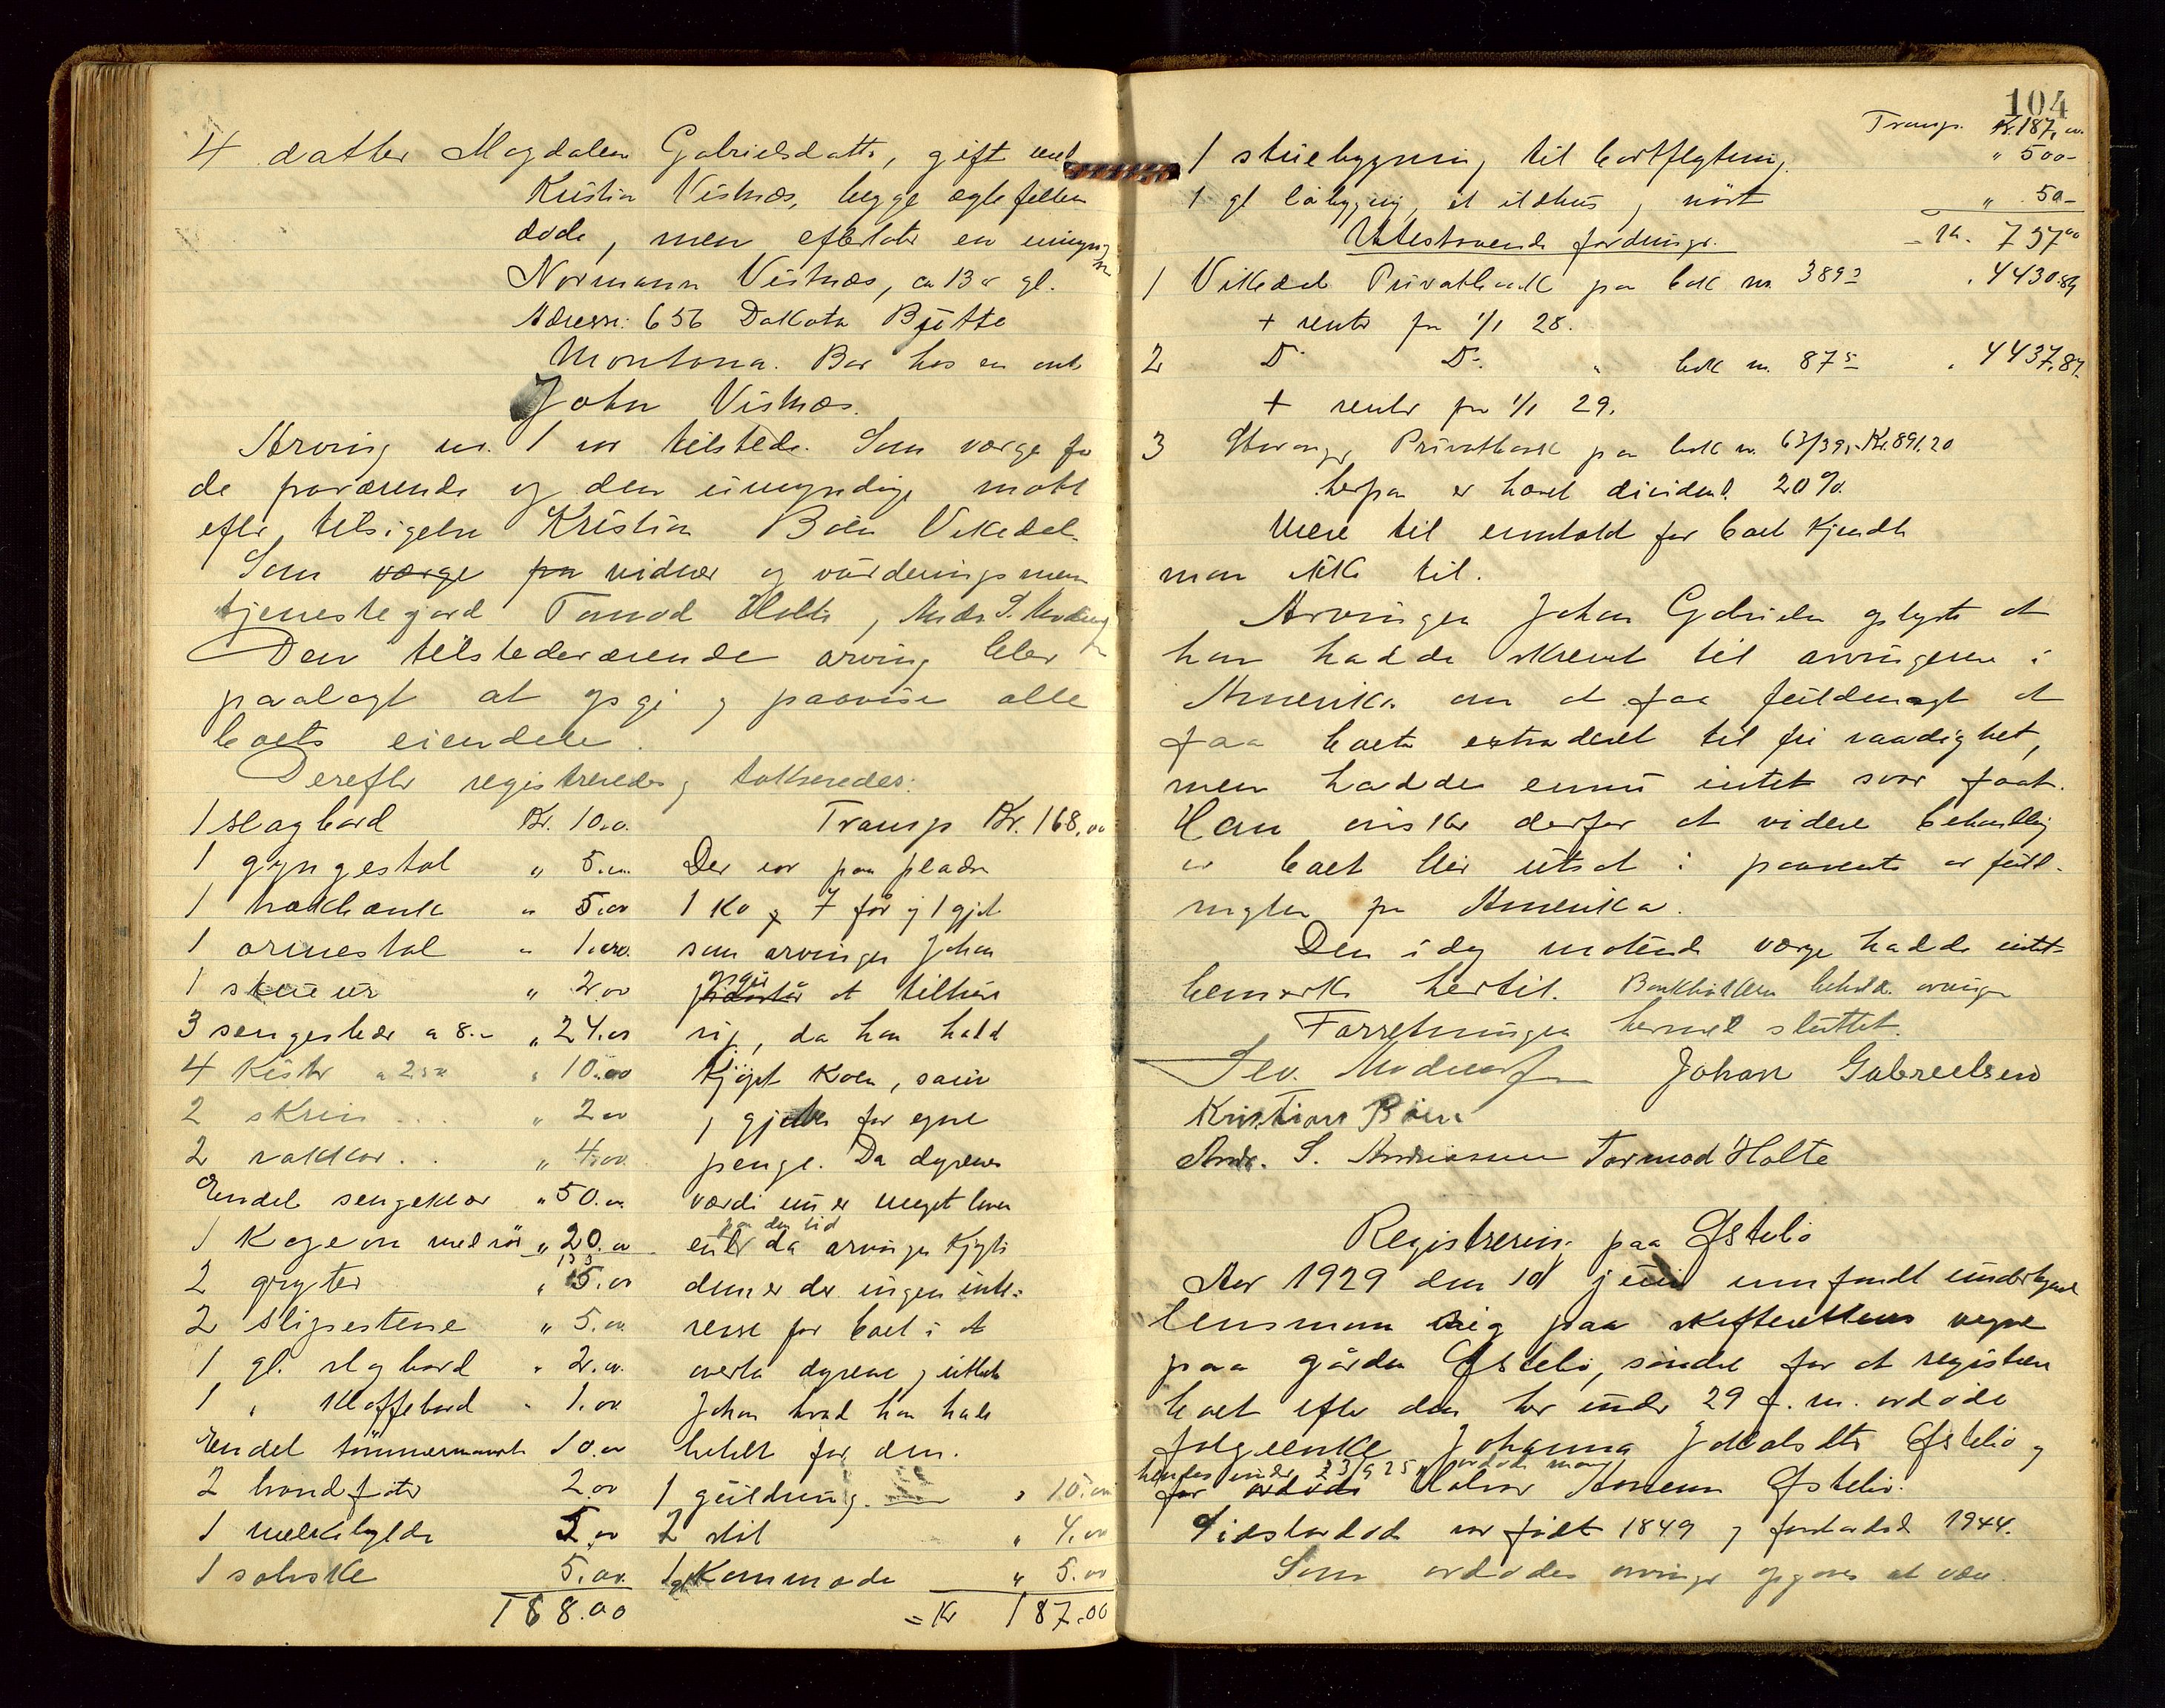 4 datter Magdalene Gabrielsdatter, gift med
Kristian Vistnæs, begge ægtefeller
døde, men efterlater en umyndig
Normann Vistnæs, ca 13 år gl.
Adresse: 656 Dakota Butte
Montana. Bor hos en onk
John Vistnæs.
Arving nr. 1 var tilstede. Som værge for
de fraværende og den umyndige møtte
efter tilsigelse Kristian Böen Vikedal.
Som værge fra vidner og vurderingsmenn
tjenestegjorde Tormod Holte, Andr. S. Andreassen
Den tilstedeværende arving blev
paalagt at opgi og paavise alle
boets eiendele.
Derefter registreredes og takseredes:
1 slagbord Kr. 10.00
1 gyngestol " 5.00
1 trækbænk " 5.00
1 armestol " 1.00
1 stueur " 2.00
3 sengesteder a 8.- " 24.00
4 kister a 2.50 " 10.00
2 skrin " 2.00
2 rokker " 4.00
Endel sengeklær " 50.00
1 kogeovn med rör " 20.00
2 gryter " 15.00
2 slipestene " 5.00
1 gl. slagbord " 2.00
1 " klaffebord " 1.00
Endel tömmermannsv. 10.00
2 vandfater 2.00
1 melkebylde 5.00
1 solvske 5.00
168.00
Transp Kr. 168.00
Der var paa pladsen
1 ko og 7 får og 1 gjet
som arvingen Johan
opgir
at tilhöre
sig, da han hadde
kjöpt koen, sauer
og gjeter for egne
penge. Da dyrenes
værdi nu er meget lavere
paa den tid
enn da arvingen kjøpte
dem er der ingen inte-
resse for boet i at
overta dyrene og utbetale
Johan hvad han hadde
betalt for dem.
1 guldring " 10.00
2 stol " 4.00
1 gl kommode " 5.00
= Kr 187.00
104
Transp. Kr. 187.00
1 stuebygning til bortflytning " 500-
1 gl löbygning, et ildhus og nöst " 50-
Kr. 737.00
Utestaaende fordringer.
1 Vikedal Privatbank paa bok nr. 389 . 4430.89
+ renter fra 1/1 28.
2 Do Do " bok nr. 875 . 4437.87
+ renter fra 1/1 29.
3 Stavanger Privatbank paa bok nr. 63/39. Kr. 891.20
herpaa er hævet dividend. 20%.
Mere til indhold for boet kjendte
man ikke til.
Arvingen Johan Gabrielsen oplyste at
han hadde skrevet til arvingene i
Amerika om at faa fuldmagt at
faa boet extraderet til fri raadighet,
men hadde ennu intet svar faat.
Han önsker derfor at videre behandling
av boet blir utsat i paavente av full-
magter fra Amerika.
Den idag mötende værge hadde intet
bemerke hertil. Bankböker beholdt arvingen
Forretningen hermed sluttet.
Johan Gabrielsen
Kristian Böen
Andr. S. Andreassen Tormod Holte
Registrering paa Østebö
Aar 1929 den 10 juni innfandt undertegnede
lensmann sig paa skifterettens vegne
paa gården Østebö, Söndre for at registrere
boet efter den her under 29 f. m. avdøde
folgeenke Johanna Østebö og
hendes under 23 9 25 avdøde mann
Halvor Østebö.
Sidstavdøde var født 1849 og forstavdøde 1944.
Som avdødes arvinger opgaves at være